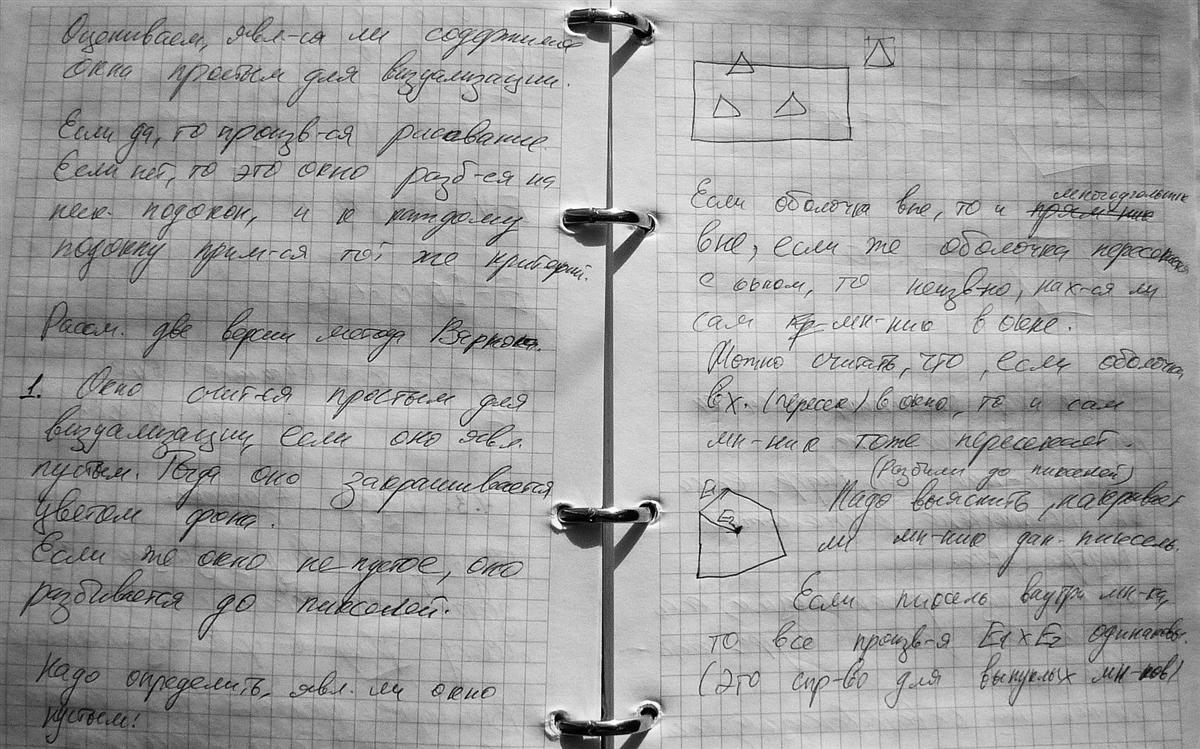 Оцениваем, явл-ся ли содержимое
окна простым для визуализации.
Если да, то произв-ся рисование.
Если нет, то это окно разб-ся на
неск. подокон, и к каждому
подокну прим-ся тот же критерий.
Рассм. две версии метода Варнока.
1. Окно счит-ся простым для
визуализации, если оно явл.
пустым. Тогда оно закрашивается
цветом фона.
Если же окно не пустое, оно
разбивается до пикселей.
Надо определить, явл. ли окно
пустым!
Если оболочка вне, то и многоугольник
вне, если же оболочка пересекается
с окном, то неизв-но, нах-ся ли
сам мн-ник в окне.
Можно считать, что, если оболочка
вх. (пересек) в окно, то и сам
мн-ник тоже пересекает.
(Разбили до пикселей)
E1
E2
Надо выяснить, накрывает
ли мн-ник дан. пиксель.
Если пиксель внутри мн-ка,
то все произв-я E1 x E2 одинаковы.
(Это спр-во для выпуклых мн-ков)